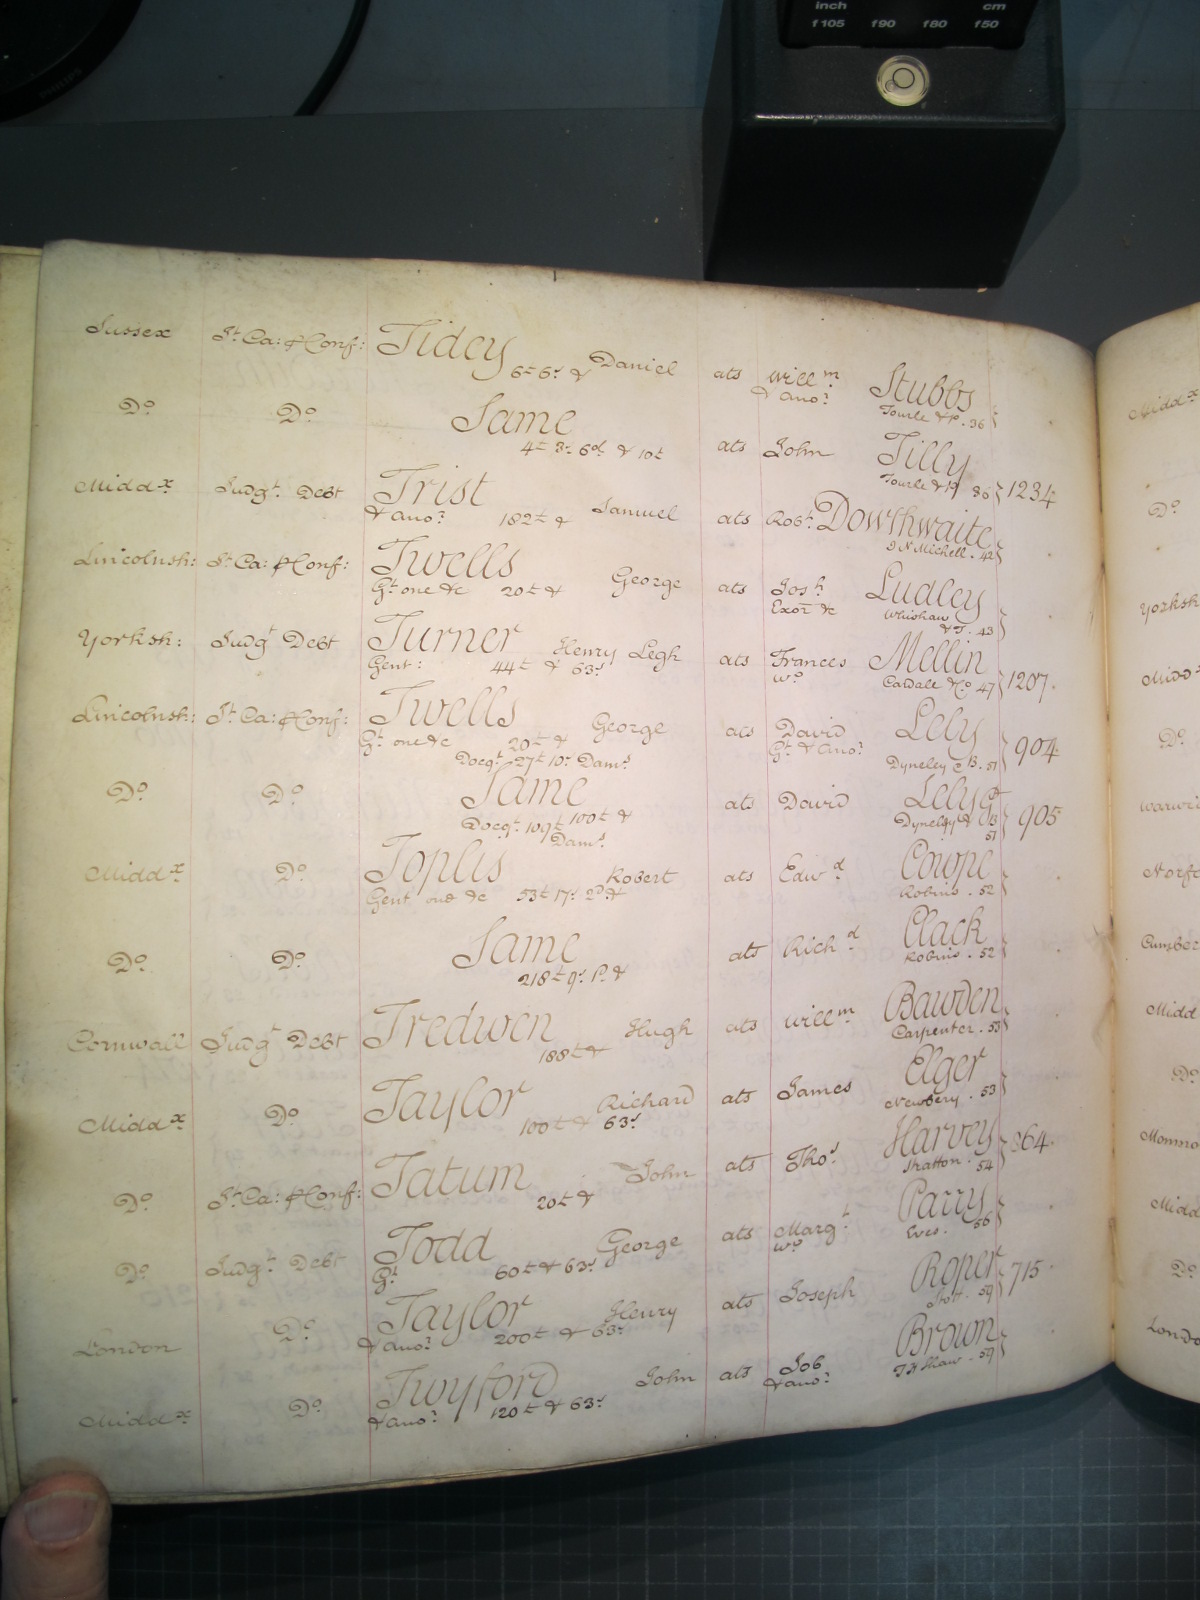 inch cm
f105 f90 f80 f50
PHILIPS
Sussex Jt. Ca: & Conf: Tidey Daniel ats Willm Stubbs
6£ 6s & & Anor Tourle & P. 36
Do Do Same ats John Tilly
4£ 3s 6d & 10£ Tourle & P 36 1234
Middx Judgt. Debt Trist Samuel ats Robt Dowthwaite
& Anor 182£ & J N Michell. 42
Lincolnsh: Jt. Ca: & Conf: Twells George ats Josh Ludley
Gt one &c 20£ & Exor &c Whishaw
& J. 43
Yorksh: Judgt Debt Turner Henry Legh ats Frances Mellin
Gent: 44£ & 63s Wo Cardale & Co 47 1207.
Lincolnsh: Jt. Ca: & Conf: Twells George ats David Lely
Gt one &c 20£ & Gt & Anor Dyneley & B. 51 904
Docqt 27£ 10s Dams
Do Do Same ats David Lely Gt
100£ & Dyneley & B 905
Docqt. 109£ Dams 51
Middx Do Toplis Robert ats Edwd Cowpe
Gent one &c 53£ 17s 2d & Robins. 52
Do Do Same ats Richd Clack
218£ 9s & Robins. 52
Cornwall Judgt Debt Tredwen Hugh ats Willm Bawden
188£ & Carpenter. 53
Middx Do Taylor Richard ats James Elger
100£ & 63s Newbery. 53
Do Jt. Ca: & Conf: Tatum John ats Thos Harvey
20£ & Shatton. 54
Do Judgt. Debt Todd George ats Margt Parry
Gt 60£ & 63s Wo 56
London Do Taylor Henry ats Joseph Roper 715.
& Anor 200£ & 63s Stott. 59
Middx Do Twyford John ats Job Brown
& Anor 120£ & 63s & Anor T H Shaw. 59
Middx
Do
Do
London